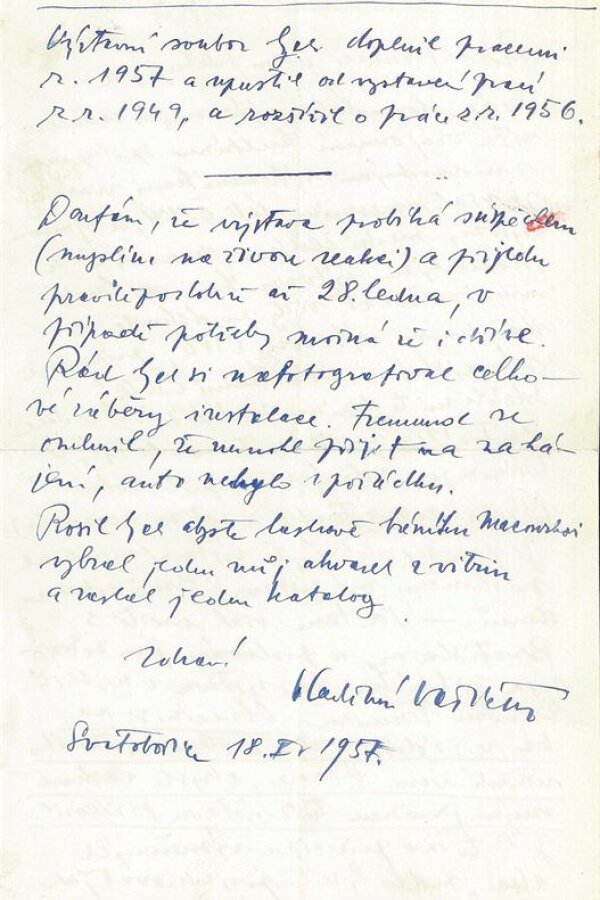 Výstavní soubor bych doplnil pracemi
z r. 1957 a upustil od vystavení prací
z r. 1949, a rozšířil o práce z r. 1956.
Doufám, že výstava probíhá s úspěchem
(myslím na živou reakci) a přijedu
pravděpodobně až 28. ledna, v
případě potřeby možná že i dříve.
Rád bych si nafotografoval celko-
vé záběry instalace. Fremund se
omluvil, že nemohl přijet na zahá-
jení, auto nebylo v pořádku.
Prosil bych abyste laskavě básníku
vybral jeden můj akvarel z vitrin
a zaslal jeden katalog.
Zdraví
Vladimír Vašíček
Svatobořice 18. 1957.